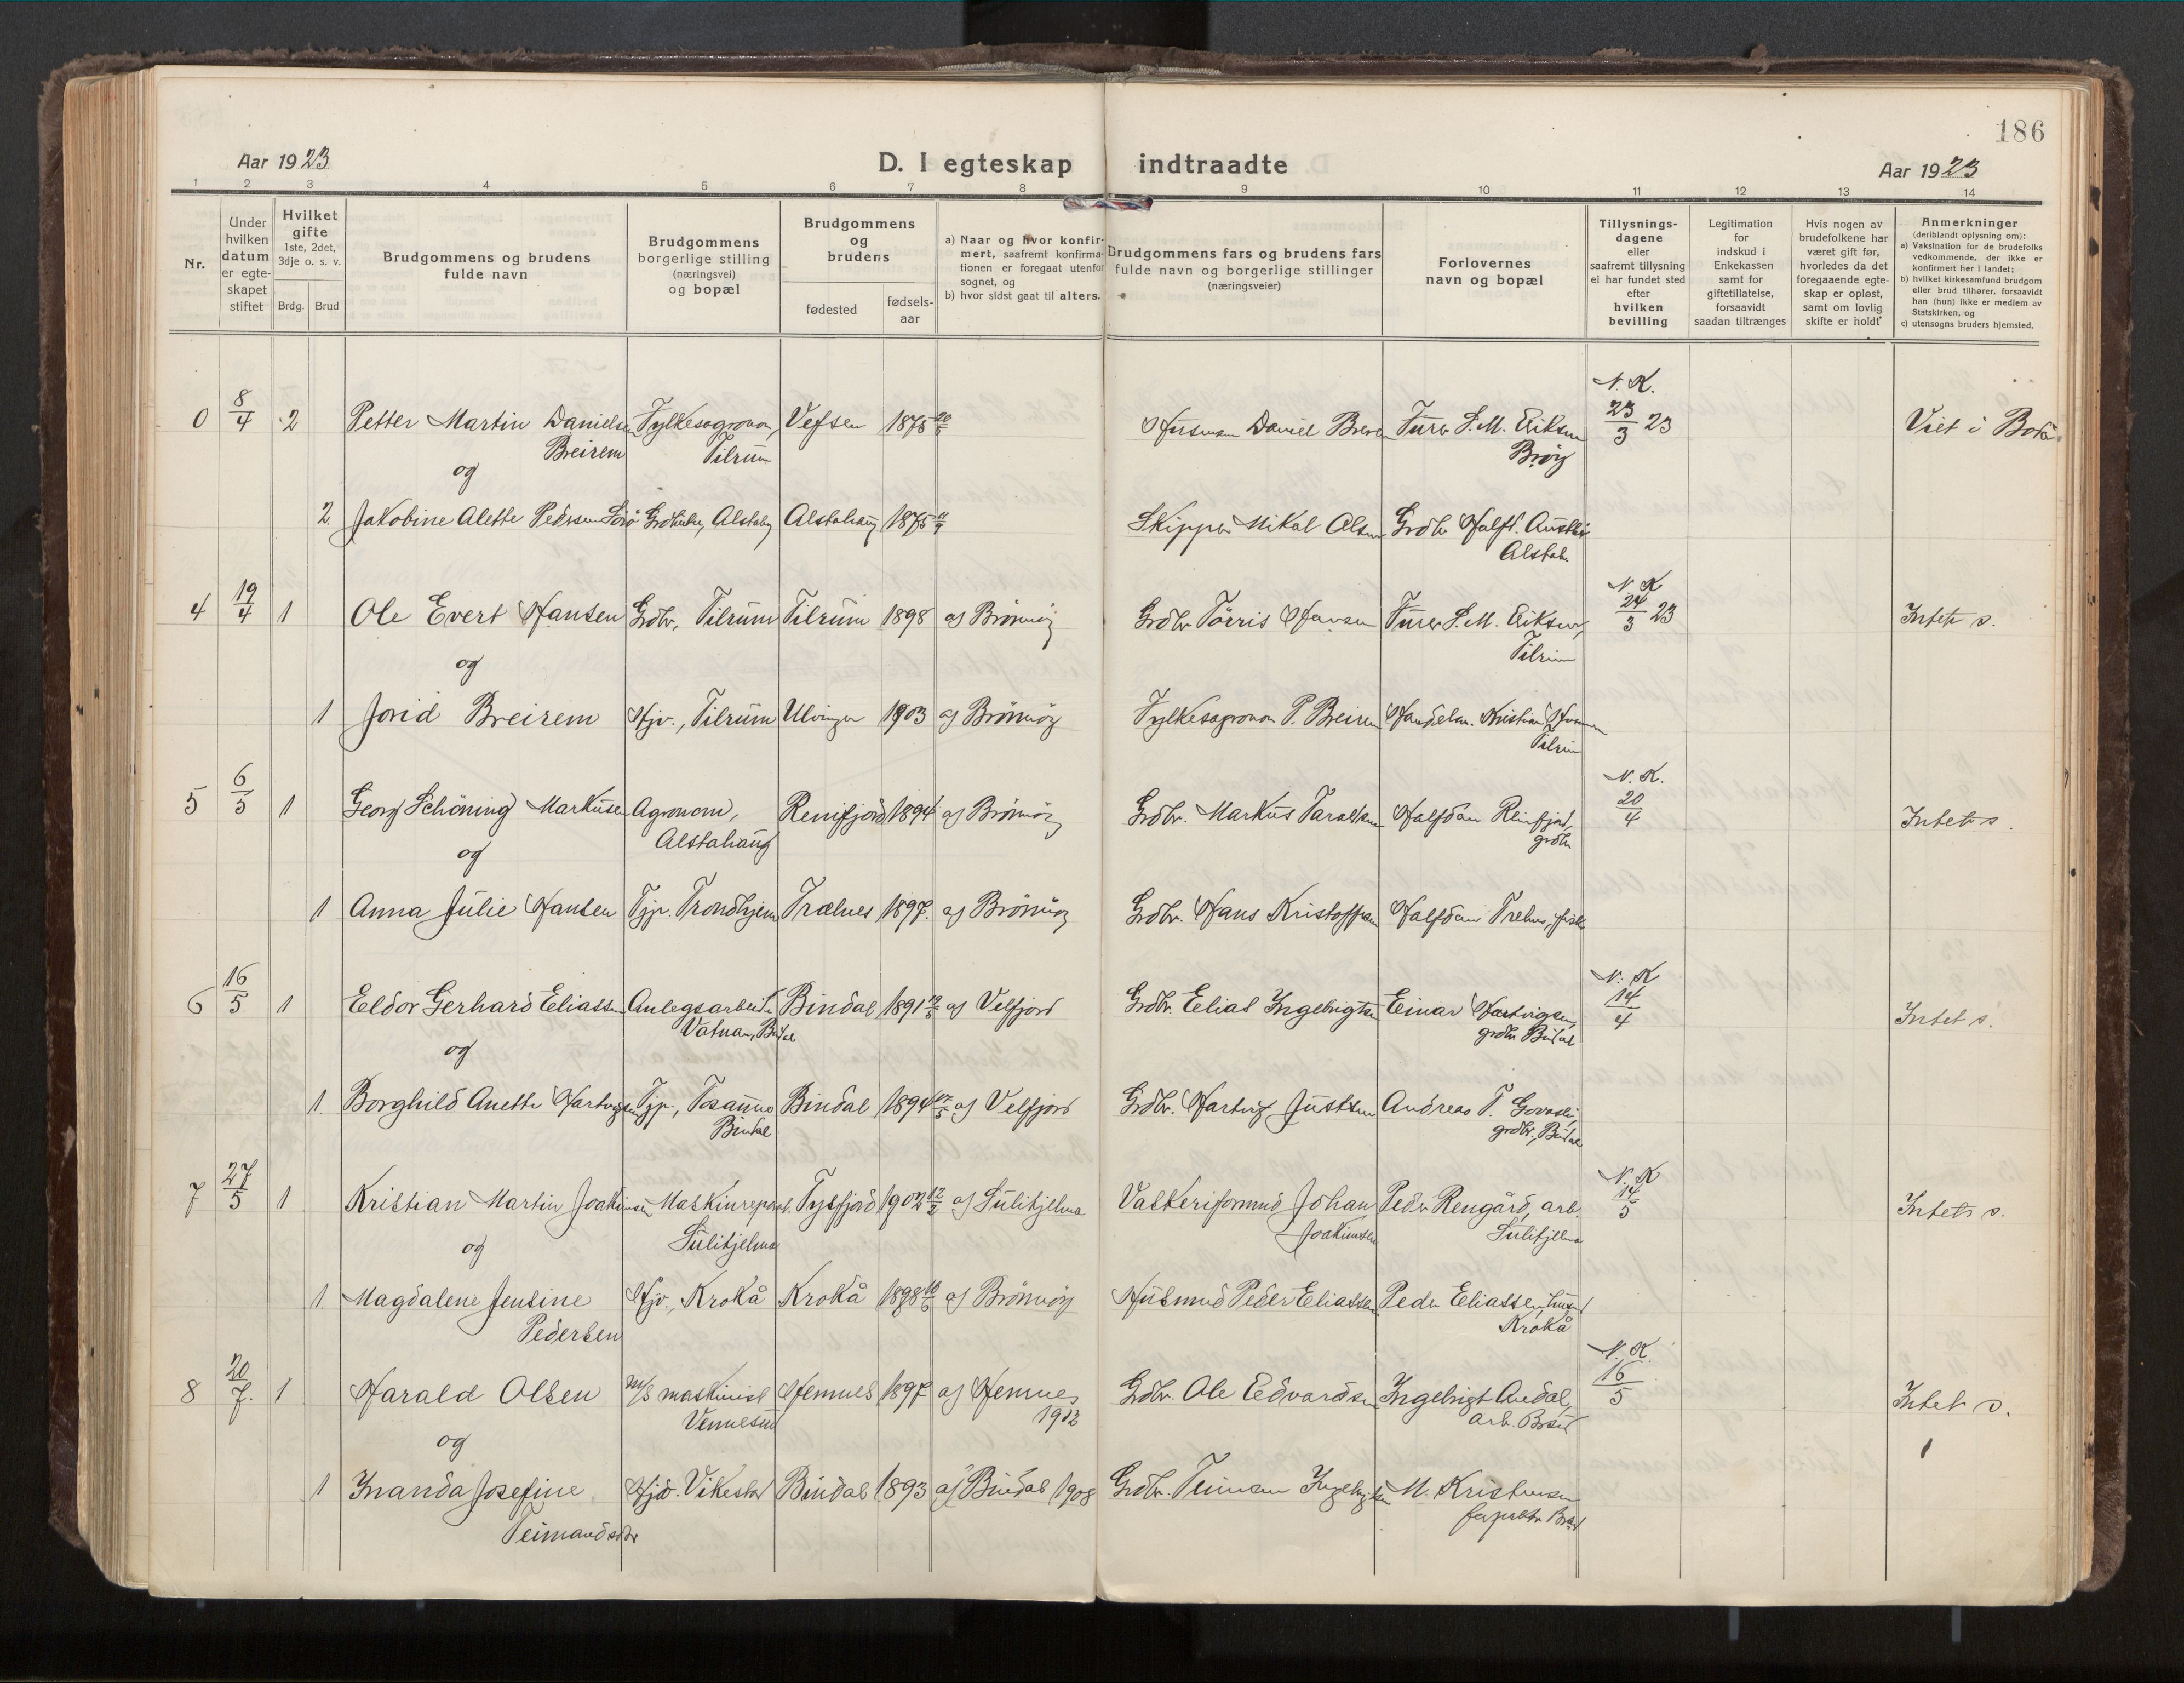 186
Aar 1923
D. I egteskap indtraadte
Aar 1923
1 2 3 4 5 6 7 8 9 10 11 12 13 14
Nr.
Under hvilken datum er egteskapet stiftet
Hvilket gifte
1ste, 2det, 3dje o. s. v.
Brdg. Brud
Brudgommens og brudens fulde navn
Brudgommens borgerlige stilling (næringsvei) og bopæl
Brudgommens og brudens
fødested
fødselsaar
a) Naar og hvor konfirmert, saafremt konfirmationen er foregaat utenfor sognet, og
b) hvor sidst gaat til alters.
Brudgommens fars og brudens fars fulde navn og borgerlige stillinger (næringsveier)
Forlovernes navn og bopæl
Tillysningsdagene eller saafremt tillysning ei har fundet sted efter hvilken bevilling
Legitimation for indskud i Enkekassen samt for giftetillatelse, forsaavidt saadan tiltrænges
Hvis nogen av brudefolkene har været gift før, hvorledes da det foregaaende egteskap er opløst, samt om lovlig skifte er holdt
Anmerkninger (deriblandt oplysning om):
a) Vaksination for de brudefolks vedkommende, der ikke er konfirmert her i landet;
b) hvilket kirkesamfund brudgom eller brud tilhører, forsaavidt han (hun) ikke er medlem av Statskirken, og
c) utensogns bruders hjemsted.
N. K.
0 8/4 2 Petter Martin Danielsen Fylkesagronom, Vefsen 1875 Husmann Daniel 23/3 23 Viet i
Breirem Tilrum
og
2. Jakobine Alette Pedersen Alstahaug 1875 11/9 Skipper Mikal Olsen Grdbr
N. K
4 19/4 1 Ole Evert Hansen Grdbr, Tilrum Tilrum 1898 af Brönnöy Grdbr Törris Hansen Furer S. M. Eriksen, 24/3 23 Intet s.
og Tilrum
1 Jorid Breirem Hjv., Tilrum Ulvingen 1903 af Brönnöy Fylkesagronom P. Breirem Handelsm. Kristian
Tilrum
N. K.
5 6/5 1 Georg Schöning Markusen Agronom, Reinfjord 1894 af Brönnöy Grdbr. Markus Halfdan Reinfjord, 20/4 Intet s.
Alstahaug grdbr
og
1 Anna Julie Hansen Tjp. Trondhjem Trælnes 1897. af Brönnöy Grdbr. Hans Kristoffersen Halfdan Trelnes,
N. K
6 16/5 1 Eldor Gerhard Eliassen Anlegsarbeider Bindal 1891 af Velfjord Grdbr. Elias Ingebrigtsen Einar Hartvigsen, 14/4 Intet s.
Bindal grdbr Bindal
og
1 Borghild Anette Hartvigsen Tjp., Bindal 1894 af Velfjord Grdbr. Hartvig Justsen Andreas T.
Bindal grdbr, Bindal
N. K
7 27/5 1 Kristian Martin Joakimsen Maskinreparat. Tysfjord 1902 12/2 af Sulitjelma Vaskeriformand Johan Peder Rengård, arb. 14/5 Intet s.
Sulitjelma Joakimsen Sulitjelma
og
1. Magdalene Jensine Hjv., Krokå Krokå 1898 af Brönnöy Husmand Peder Eliassen Peder Eliassen,
Pedersen Krokå
N. K.
8 20/7. 1 Harald Olsen m/s maskinist Hemnes 1897 af Hemnes Grdbr. Ole Edvardsen Ingebrigt 16/5 Intet s.
Vennesund 1912 arb.
og
1 Inanda Josefine Hjv. Vikestad Bindal 1893 af Bindal 1908 Grdbr. Teiman Ingebrigtsen M. Kristensen
Teimandsdtr